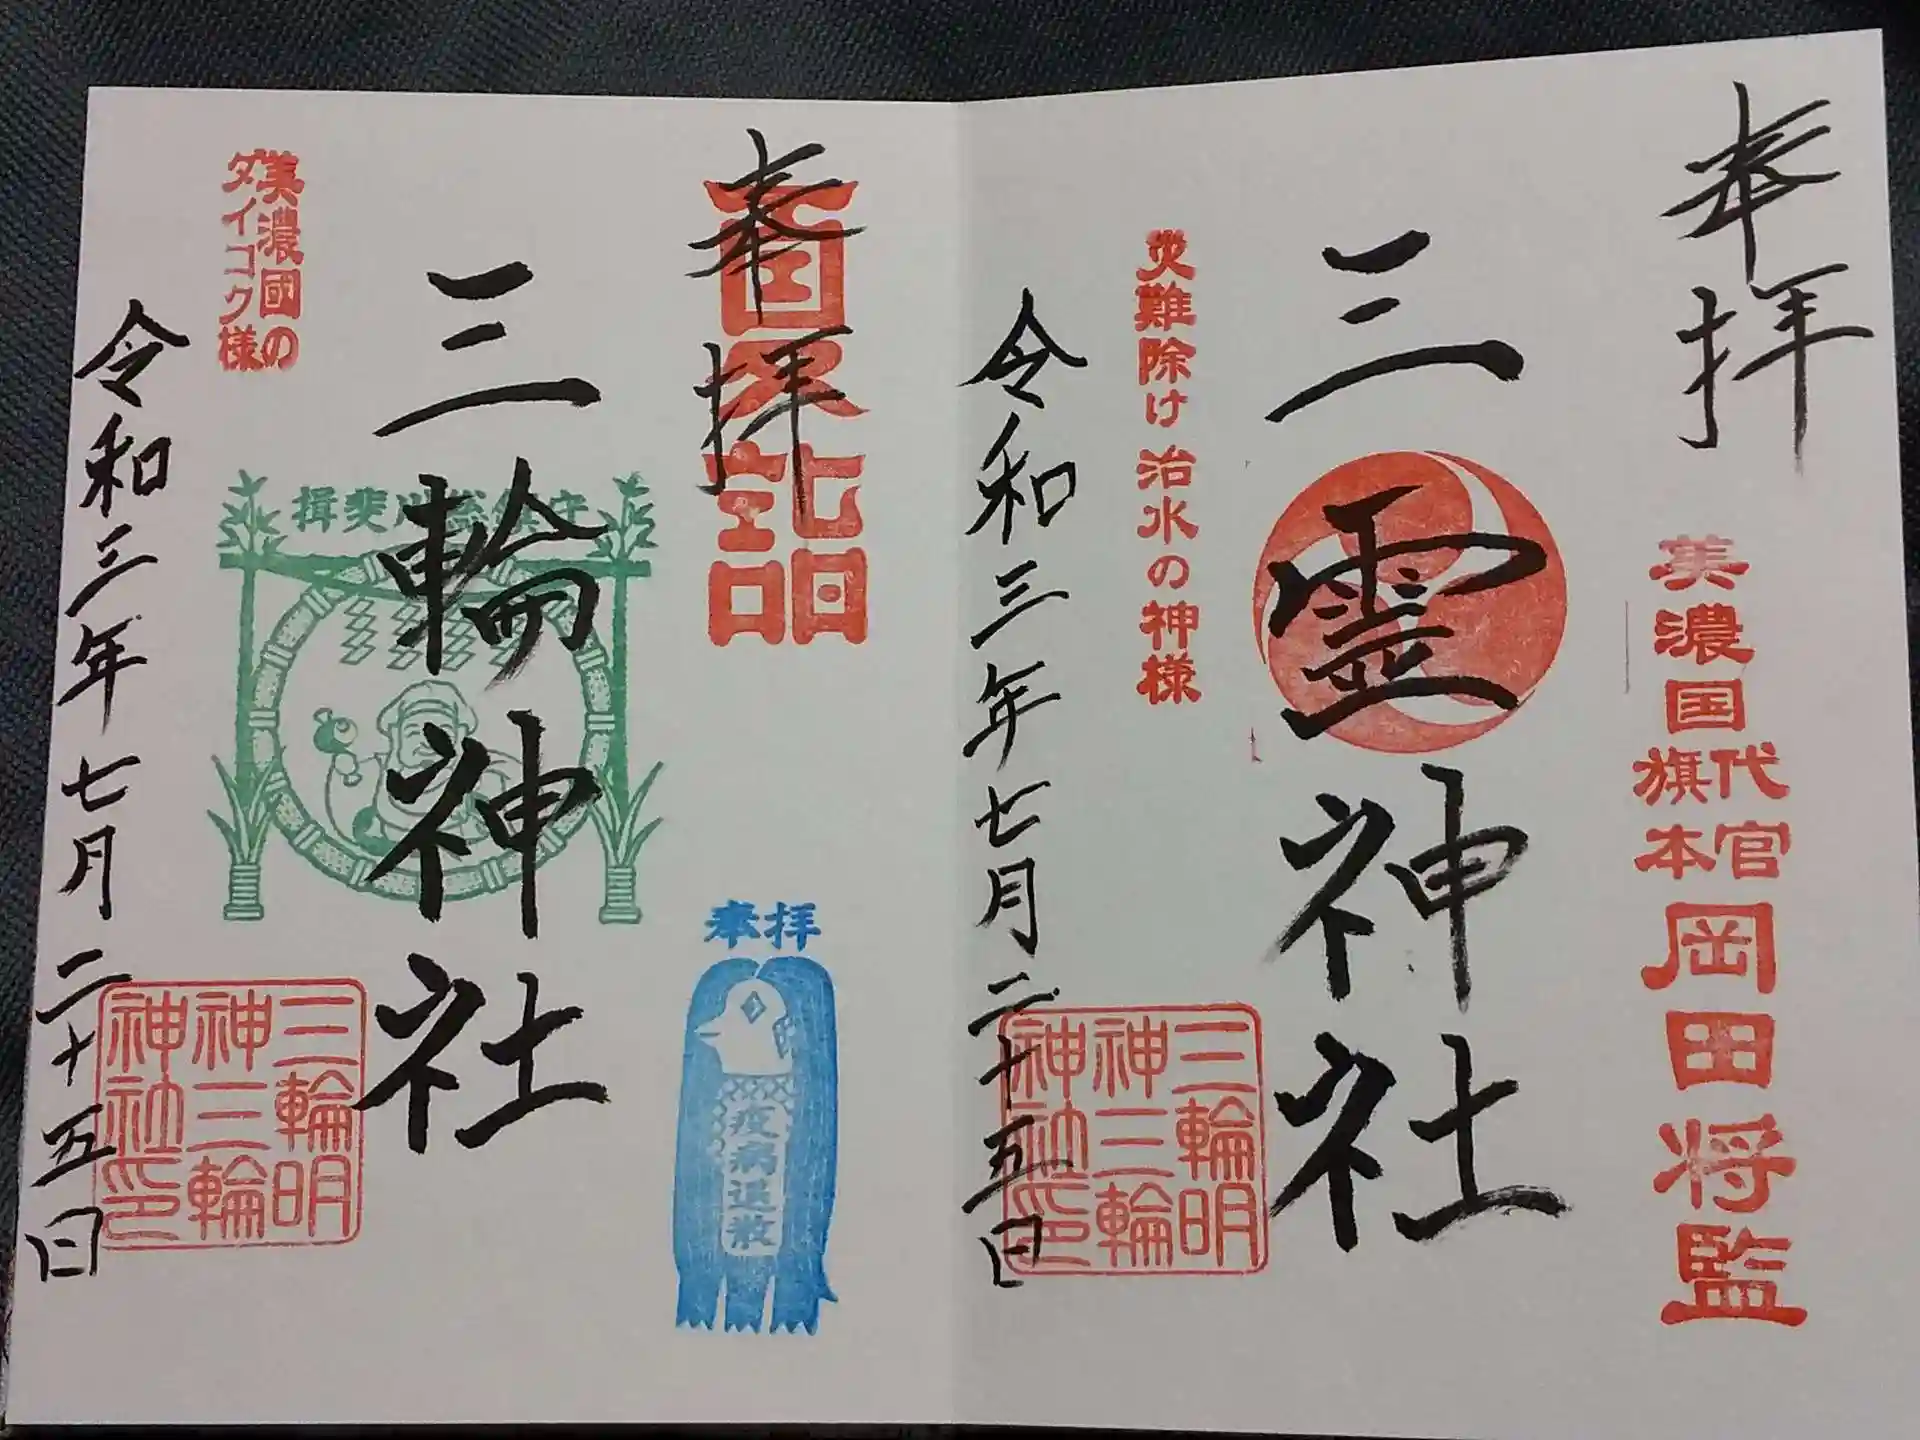 奉拝
美濃国
代官
旗本
岡田将監
三霊神社
災難除け 治水の神様
三輪明
神三輪
神社印
令和三年七月二十五日
奉拝
奉拝
疫病退散
三輪神社
揖斐川総鎮守
美濃國の
ダイコク様
三輪明
神三輪
神社印
令和三年七月二十五日